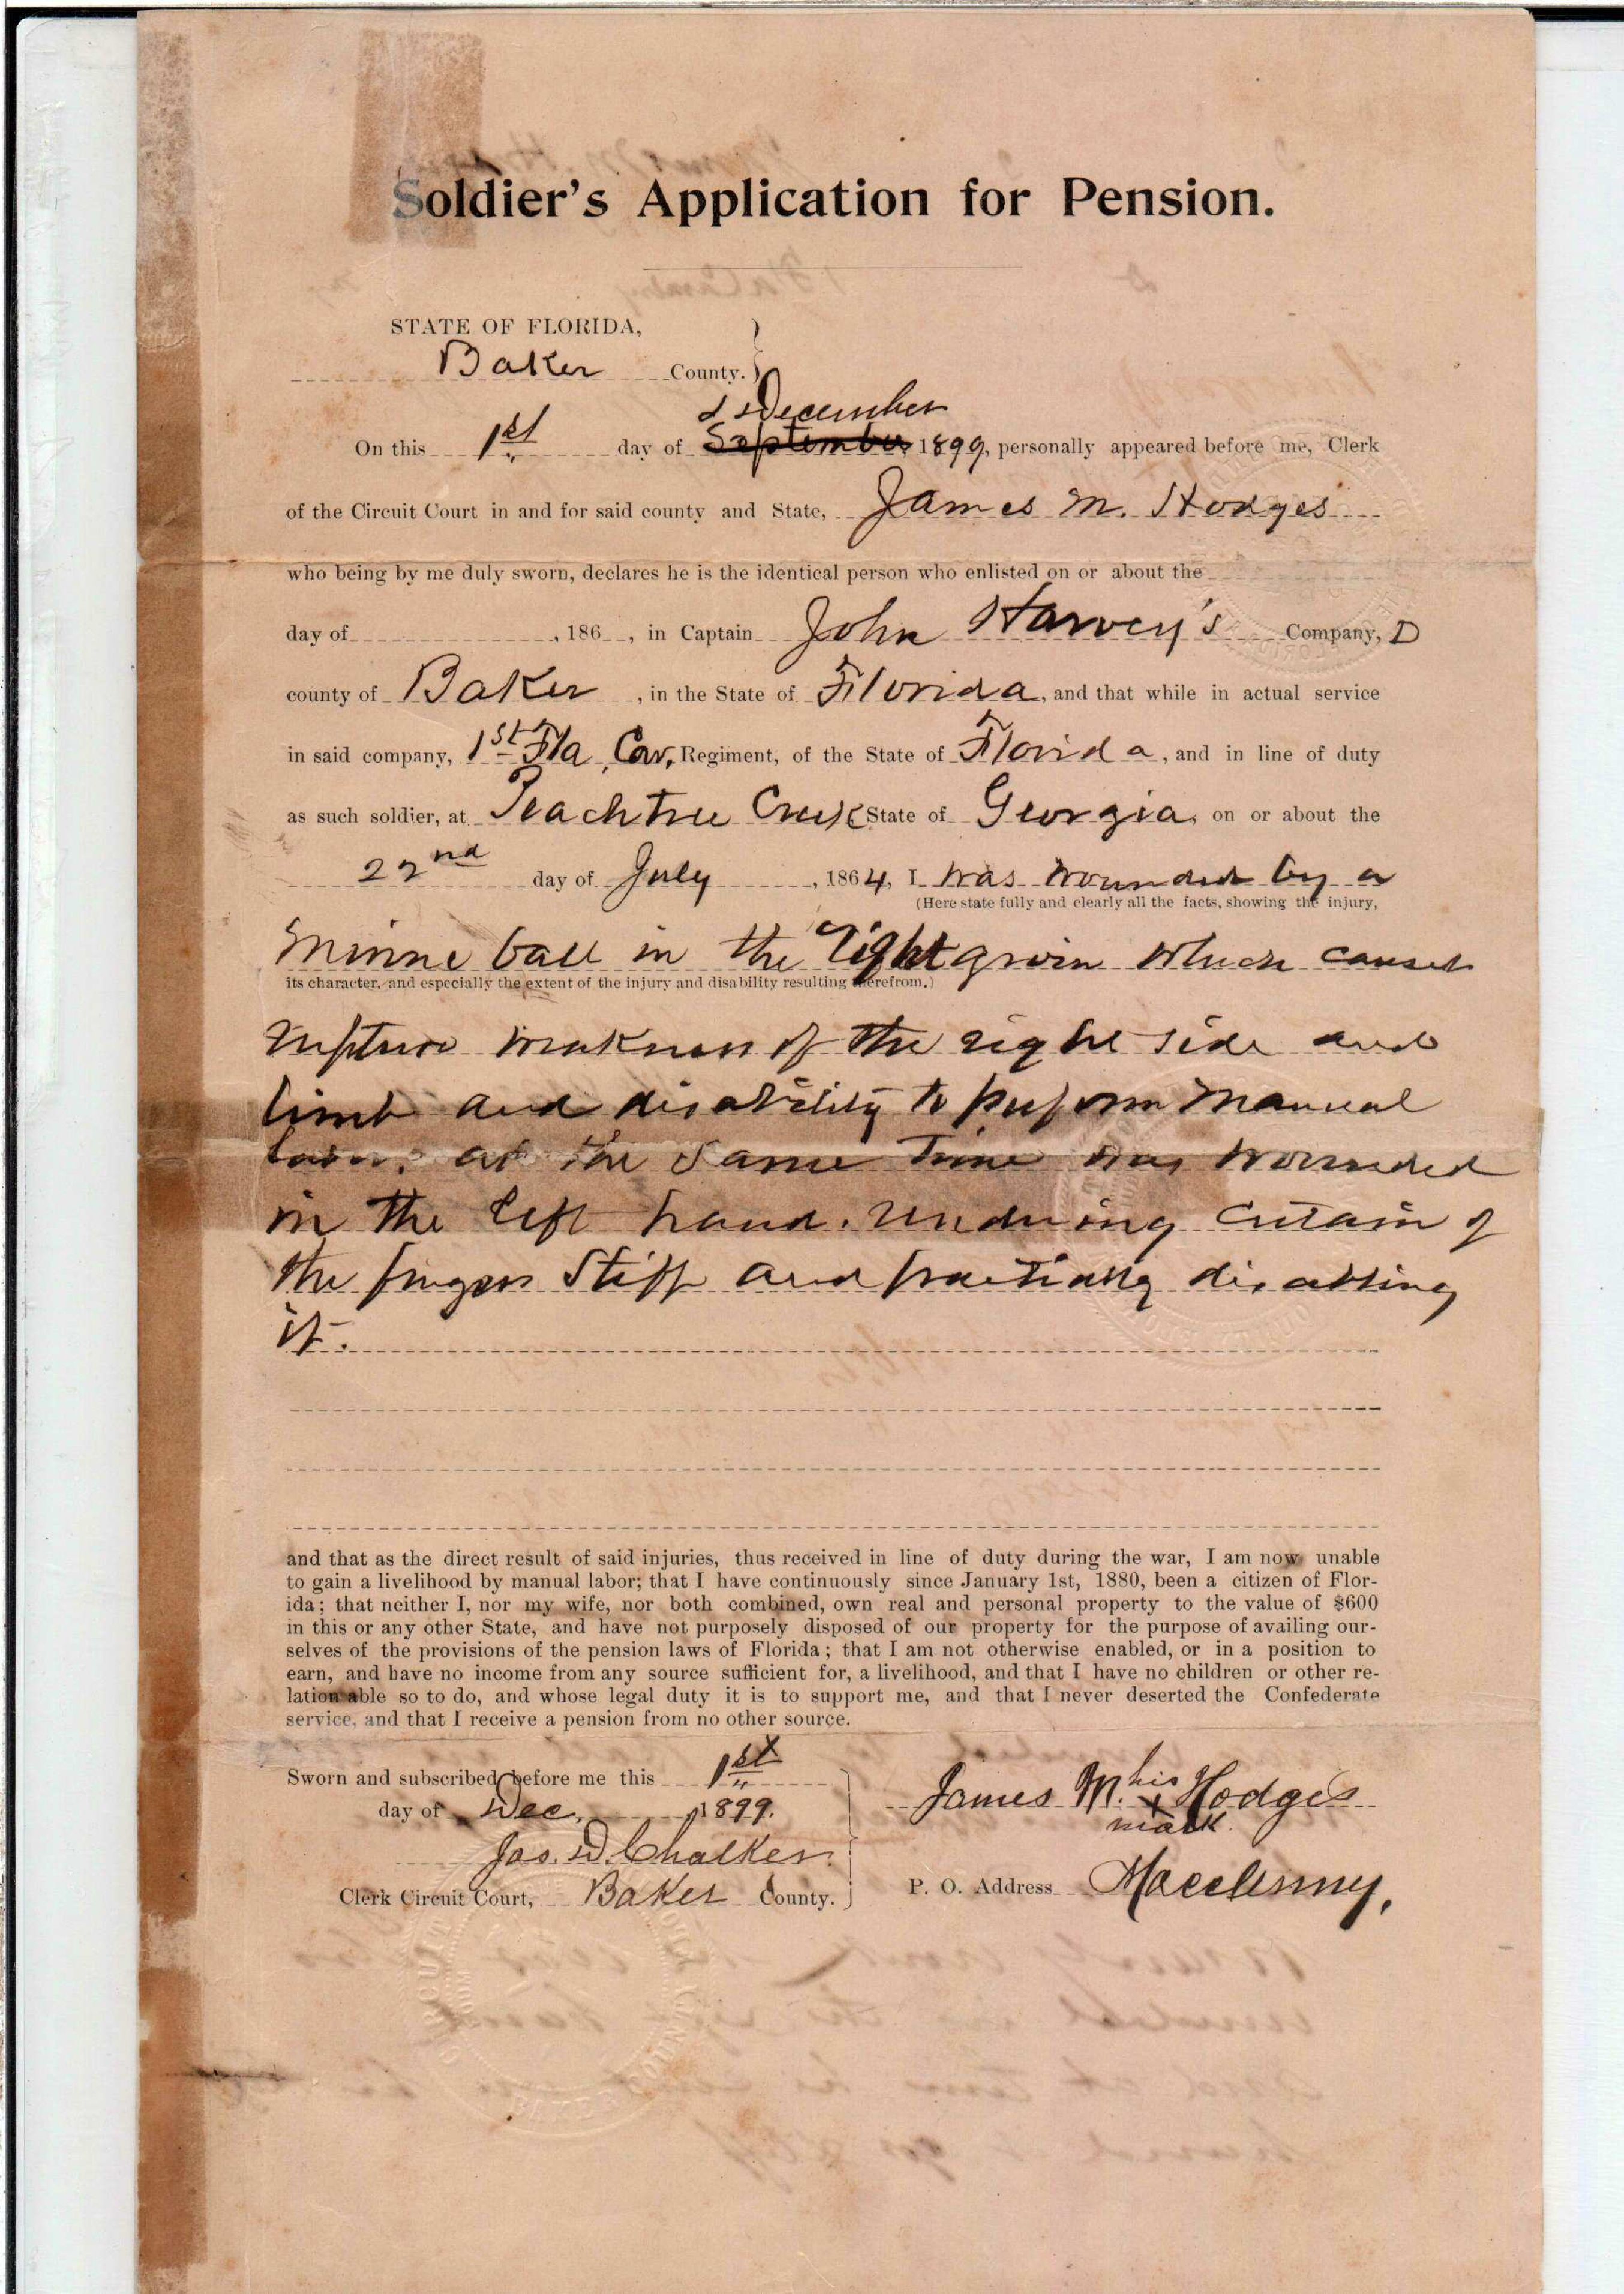 Soldier's Application for Pension.
STATE OF FLORIDA,
Baker County.
December
On this 1st day of September 1899, personally appeared before me, Clerk
of the Circuit Court in and for said county and State, James M. Hodges
who being by me duly sworn, declares he is the identical person who enlisted on or about the
day of , 186 , in Captain John Harvey's Company, D
county of Baker , in the State of Florida, and that while in actual service
in said company, 1st Fla, Cav, Regiment, of the State of Florida, and in line of duty
as such soldier, at Peachtree Creek State of Georgia, on or about the
22nd day of July , 1864, I was wounded by a
(Here state fully and clearly all the facts, showing the injury,
Minne ball in the right groin which caused
its character, and especially the extent of the injury and disability resulting therefrom.)
rupture weakness of the right side and
limb and disability to perform manual
at the same time was wounded
in the left hand. rendering certain of
the fingers stiff and partially disabling
it.
and that as the direct result of said injuries, thus received in line of duty during the war, I am now unable
to gain a livelihood by manual labor; that I have continuously since January 1st, 1880, been a citizen of Flor-
ida; that neither I, nor my wife, nor both combined, own real and personal property to the value of $600
in this or any other State, and have not purposely disposed of our property for the purpose of availing our-
selves of the provisions of the pension laws of Florida; that I am not otherwise enabled, or in a position to
earn, and have no income from any source sufficient for, a livelihood, and that I have no children or other re-
lation able so to do, and whose legal duty it is to support me, and that I never deserted the Confederate
service, and that I receive a pension from no other source.
Sworn and subscribed before me this 1st
day of Dec, 1899.
Jas. D. Chalker.
Clerk Circuit Court, Baker County.
James M. his x mark Hodges
P. O. Address Macclenny,